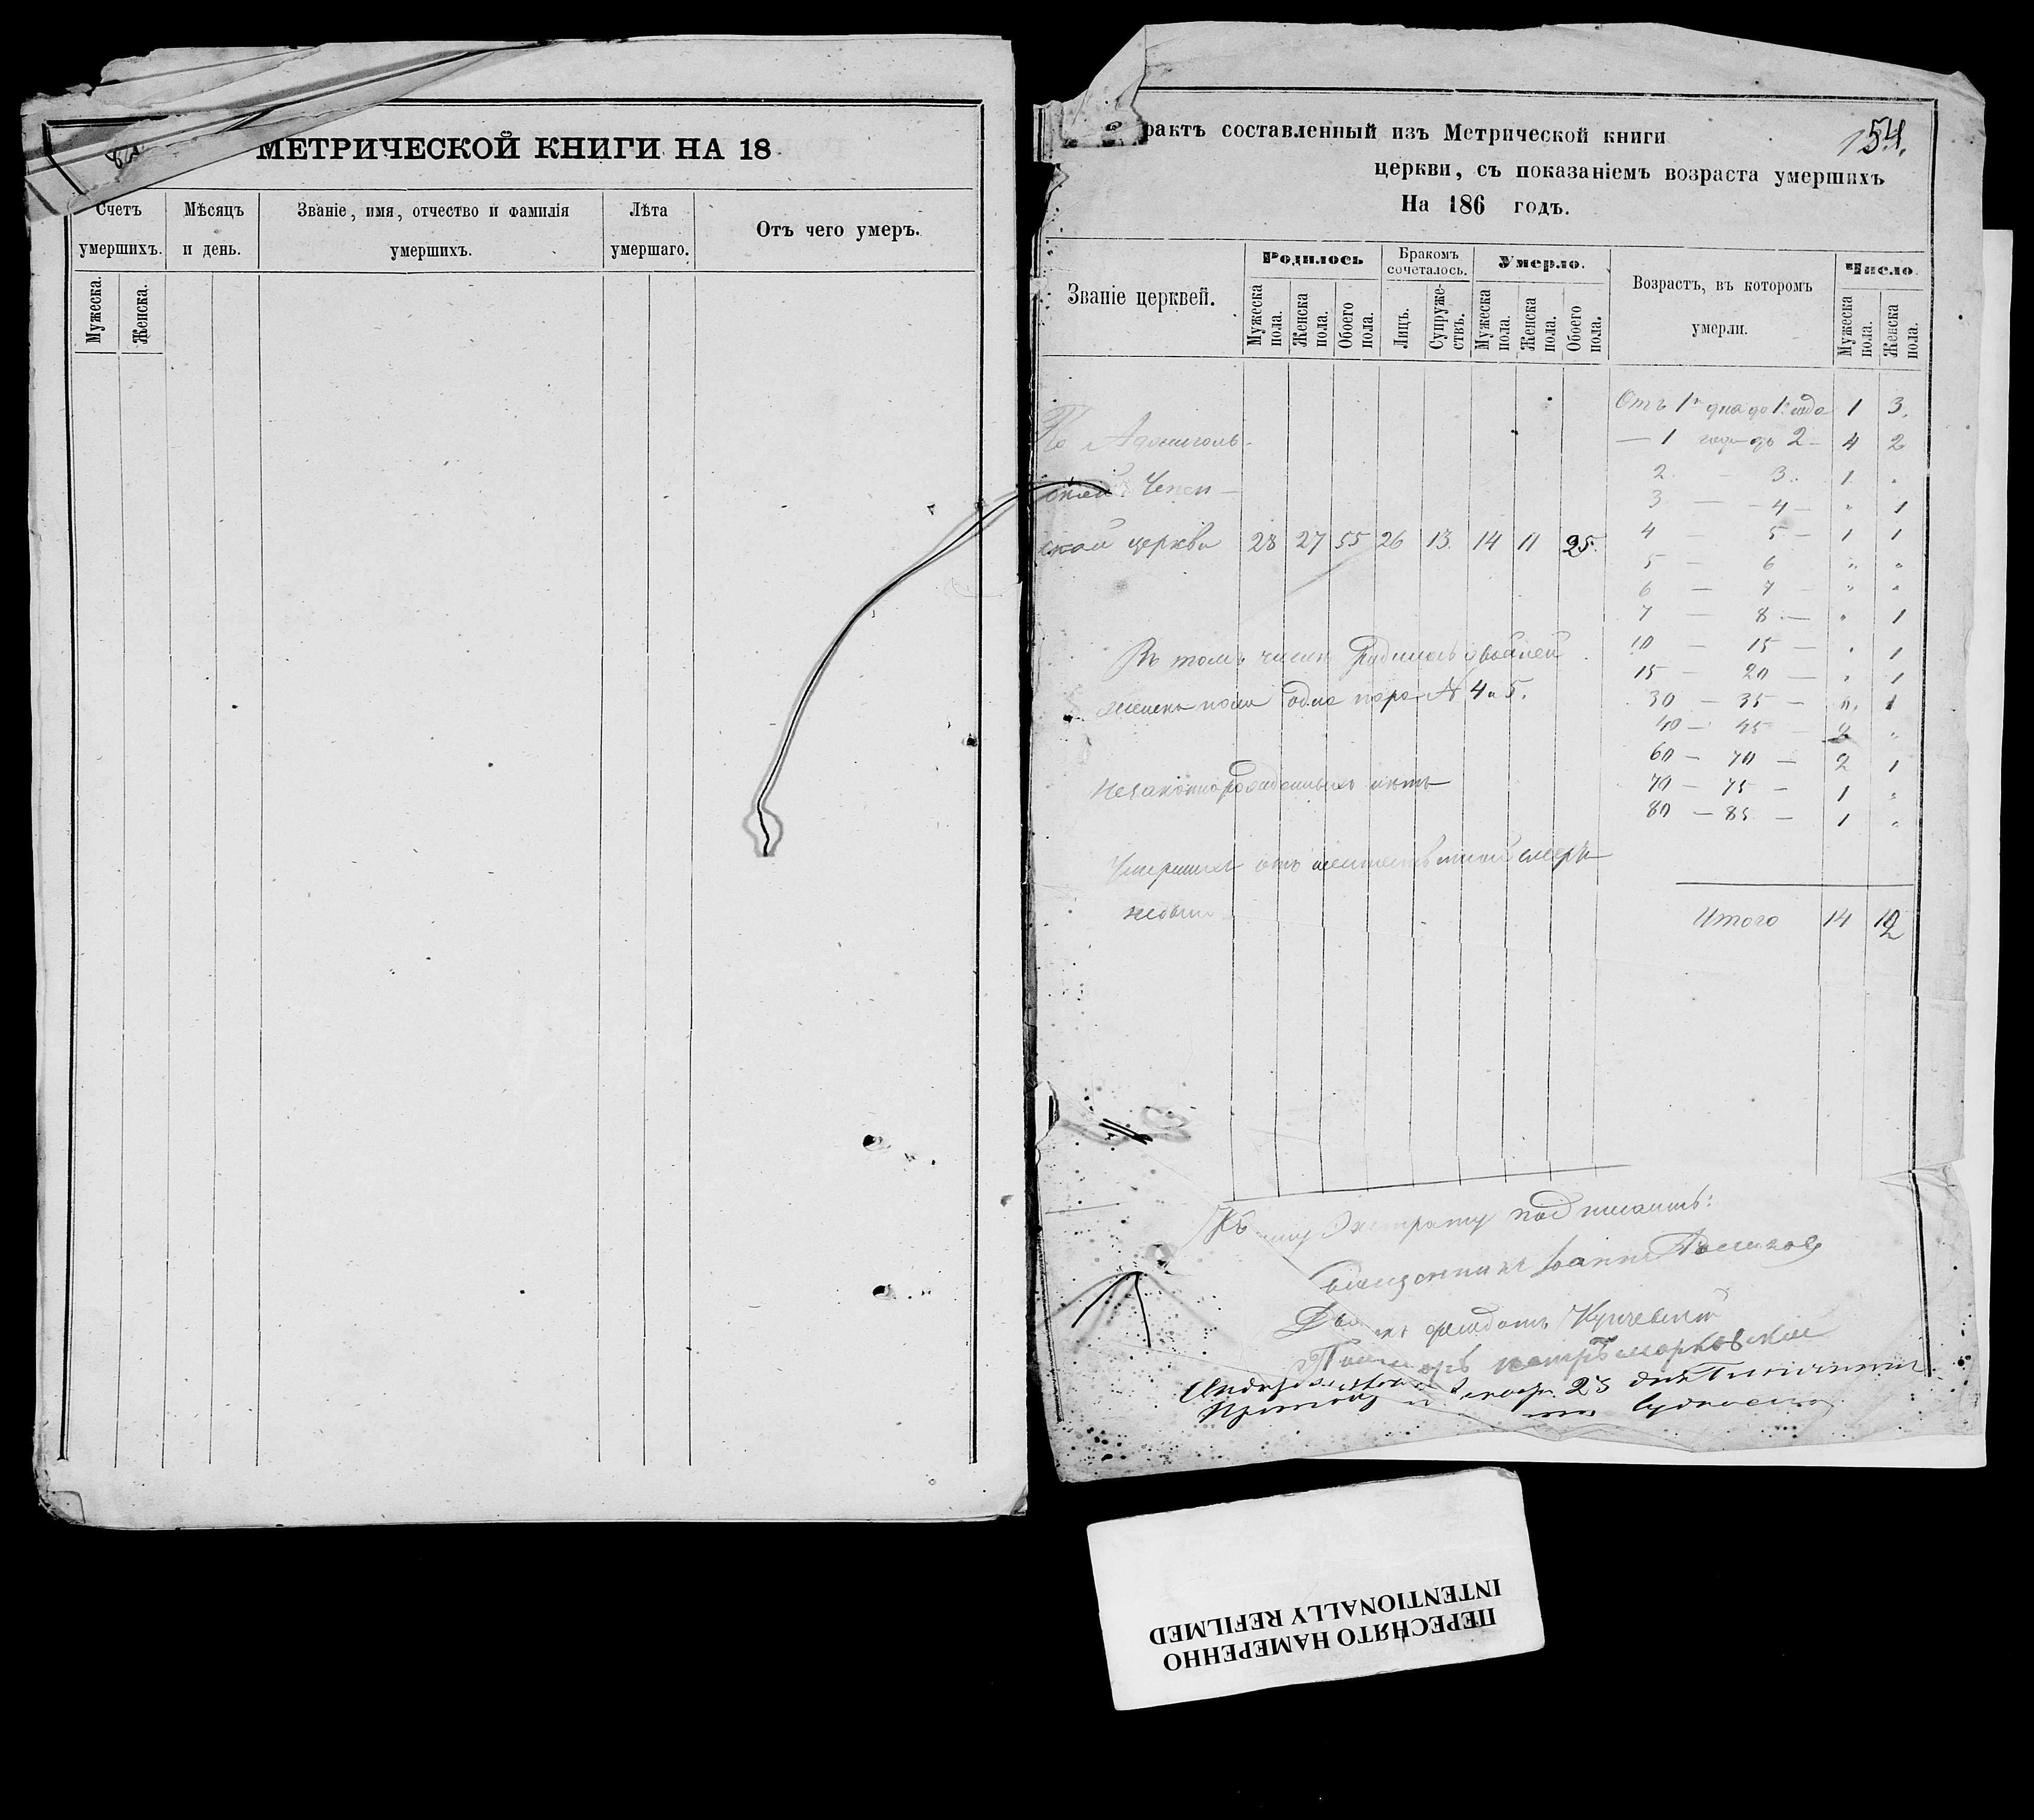 МЕТРИЧЕСКОЙ КНИГИ НА 18
Счетъ умершихъ.
Мѣсяцъ и день.
Званіе, имя, отчество и фамилія умершихъ.
Лѣта умершаго.
Отъ чего умеръ.
Мужеска.
Женска.
154.
рактъ составленный изъ Метрической книги
церкви, съ показаніемъ возраста умершихъ
На 186 годъ.
Званіе церквей.
Родилось
Бракомъ сочеталось.
Умерло.
Возрастъ, въ которомъ умерли.
Число.
Мужеска пола.
Женска пола.
Обоего пола.
Лицъ.
Супружествъ.
Мужеска пола.
Женска пола.
Обоего пола.
Мужеска пола.
Женска пола.
Отъ 1го дна до 1. года 1 3.
— 1 года до 2 — 4 2
2 — 3. 1 "
3 — 4 — " 1
4 — 5 — 1 1
5 — 6 " "
6 — 7 — " "
7 — 8 — " 1
10 — 15 — " 1
15 — 20 — " 1
30 — 35 — " 1
40 — 45 — 2 "
60 — 70 — 2 1
70 — 75 — 1 "
80 — 85 — 1 "
Итого 14 12
ской церкви 28 27 55 26 13. 14 11 25.
Въ томъ числѣ родилось двойней
женска пола одна пара № 4 и 5.
незаконнорожденныхъ нѣтъ
Умершихъ отъ
небыло
Къ Экстракту подписались:
Священникъ Іоаннъ
ПЕРЕСНЯТО НАМЕРЕННО
INTENTIONALLY REFILMED